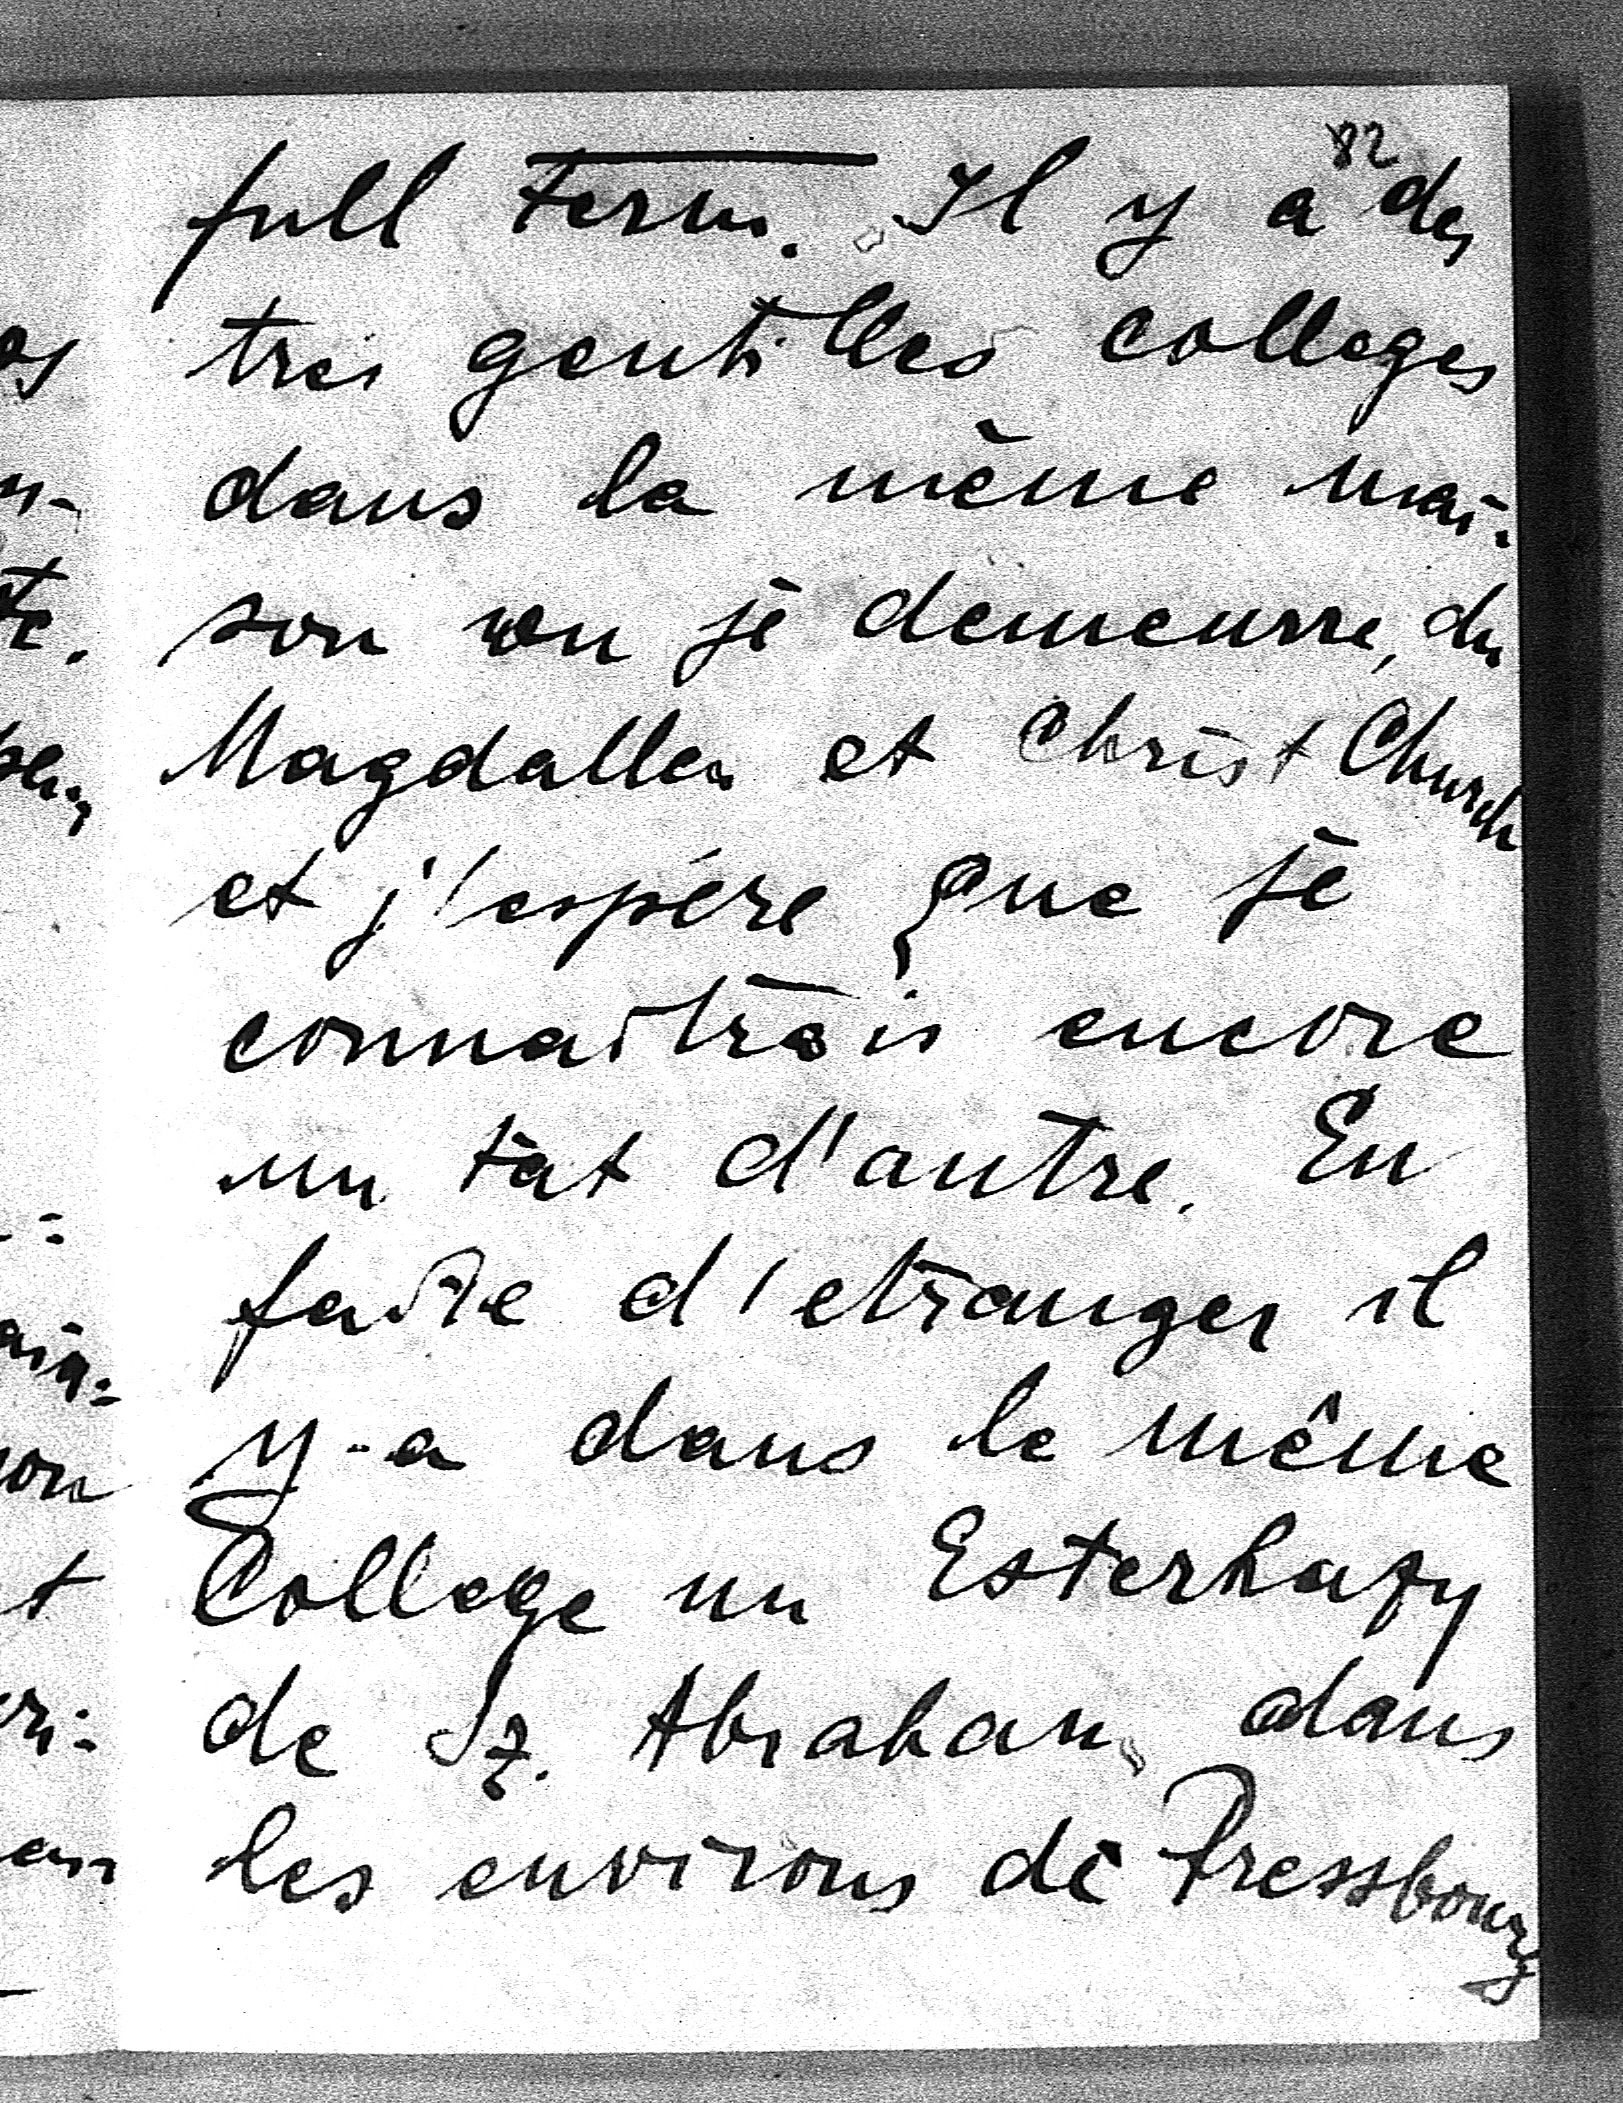 82
full Term. Il y a des
tres gentilles colleges
dans la même mai-
son ou je demeurre, du
Magdallen et Christ Church
et j'espére que je
connaitrais encore
un tat d'autre. En
faite d'etranger il
y-a dans le même
College un Esterhazy
de Sz. Abraham dans
les environs de Pressbourg